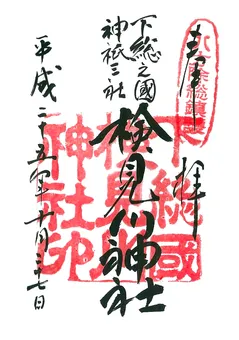 八方除総鎮護
奉拝
下総之國
神祇三社
検見川神社
下総國
検見川
神社印
平成二十五年十月二七日